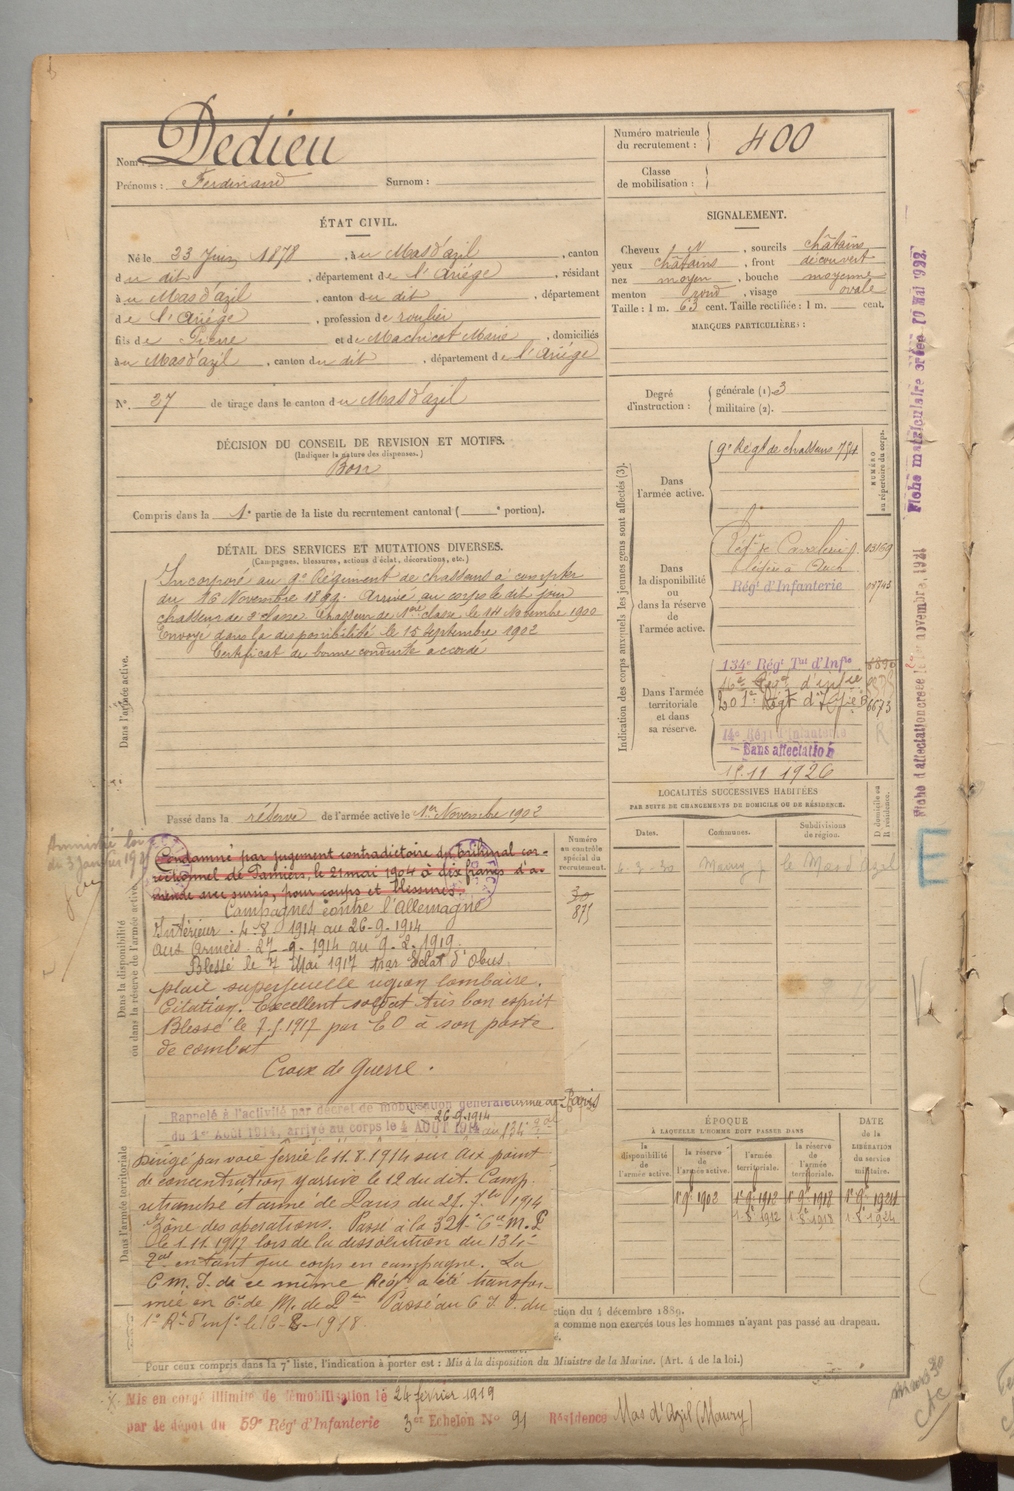 Nom : Dedieu
Prénoms : Ferdinand Surnom :
Numéro matricule
du recrutement : 400
Classe
de mobilisation :
ÉTAT CIVIL.
Né le 23 Juin 1878, à u Mas d'azil, canton
d u dit, département de l'Ariége, résidant
à u Mas d'azil, canton du dit, département
de l'Ariége, profession de roulier
fils de Pierre et de Marie, domiciliés
à u Mas d'azil, canton du dit, département de l'Ariége
N° 27 de tirage dans le canton du Mas d'azil
DÉCISION DU CONSEIL DE REVISION ET MOTIFS.
(Indiquer la nature des dispenses.)
Bon
Compris dans la 1e partie de la liste du recrutement cantonal ( e portion).
DÉTAIL DES SERVICES ET MUTATIONS DIVERSES.
(Campagnes, blessures, actions d'éclat, décorations, etc.)
Dans l'armée active.
Incorporé au 9e Régiment de chasseurs à compter
du 16 Novembre 1899. Arrivé au corps le dit jour
chasseur de 2e classe. Chasseur de 1ère classe, le 14 Novembre 1900
Envoyé dans la disponibilité le 15 Septembre 1902
Certificat de bonne conduite accordé
Passé dans la réserve de l'armée active le 1er Novembre 1902
Amnistié loi
du 3 Janvier 1925
Dans la disponibilité
ou dans la réserve de l'armée active.
Condamné par jugement contradictoire du tribunal cor-
rectionnel de Pamiers, le 21 mai 1904 à dix francs d'a-
mende avec sursis, pour coups et blessures.
Campagnes contre l'Allemagne
Intérieur. 4-8 1914 au 26-9-1914
aux Armées. 27-9-1914 au 9-2-1919.
Blessé le 7 Mai 1917 par Eclat d'obus,
plaie superficielle région lombaire.
Citation. Excellent soldat très bon esprit
Blessé le 7.5.1917 par E O à son poste
de combat
Croix de Guerre.
Numéro
au contrôle
spécial du
recrutement.
30
875
Dans l'armée territoriale
Rappelé à l'activité par décret de mobilisation générale Paris
26-9-1914
du 1er Août 1914, arrivé au corps le 4 AOUT 1914 au 134e
Dirigé par voie ferrée le 11.8.1914 sur dix point
de concentration y arrivé le 12 du dit. Camp
retranché et armé de Paris du 27. 7bre 1914
Zône des opérations. Passé à la 321e Cie M. P
le 1.11.1917 lors de la dissolution du 134e
Ral en tant que corps en campagne. La
C m. J. de ce même Régt a été transfor-
mée en Cie de M. de Pon Passé au
1er Rt d'inf. le 1918
ction du 4 décembre 1889.
a comme non exercés tous les hommes n'ayant pas passé au drapeau.
Pour ceux compris dans la 7e liste, l'indication à porter est : Mis à la disposition du Ministre de la Marine. (Art. 4 de la loi.)
Mis en congé illimité de démobilisation le 24 février 1919
par le dépot du 59e Rég d'Infanterie 3er Echelon No 91 Résidence Mas d'Azil (Maury)
SIGNALEMENT.
Cheveux N, sourcils châtains
yeux châtains, front découvert
nez moyen, bouche moyenne
menton rond, visage ovale
Taille : 1 m. 63 cent. Taille rectifiée : 1 m. cent.
MARQUES PARTICULIÈRES :
Degré
d'instruction : générale (1). 3
militaire (2).
Indication des corps auxquels les jeunes gens sont affectés (3).
NUMÉRO
au répertoire du corps.
Dans
l'armée active.
9e Régt de chasseurs 734
Dans
la disponibilité
ou
dans la réserve
de
l'armée active.
Cavalerie
à Auch
Régt d'Infanterie
Dans l'armée
territoriale
et dans
sa réserve.
134e Régt Tal d'Infie
201e Régt d'
14e Régt d'Infanterie
Sans affectation
15.11 1926
LOCALITÉS SUCCESSIVES HABITÉES
PAR SUITE DE CHANGEMENTS DE DOMICILE OU DE RÉSIDENCE.
Dates. Communes. Subdivisions
de région. D domicile ou
R résidence.
6 3 30 Maury le Mas d'Azil
ÉPOQUE
À LAQUELLE L'HOMME DOIT PASSER DANS
DATE
de la
LIBÉRATION
du service
militaire.
la
disponibilité
de
l'armée active.
la réserve
de
l'armée active.
l'armée
territoriale.
la réserve
de
l'armée
territoriale.
1er 9bre 1902 1er 9bre 1912 1er 9bre 1918 1er 9bre 1924
1-8-1912 1-8-1918 1-8-1924
Fiche matriculaire créée 10 Mai 1922.
Fiche d'affectation créée le 1er novembre 1921
E